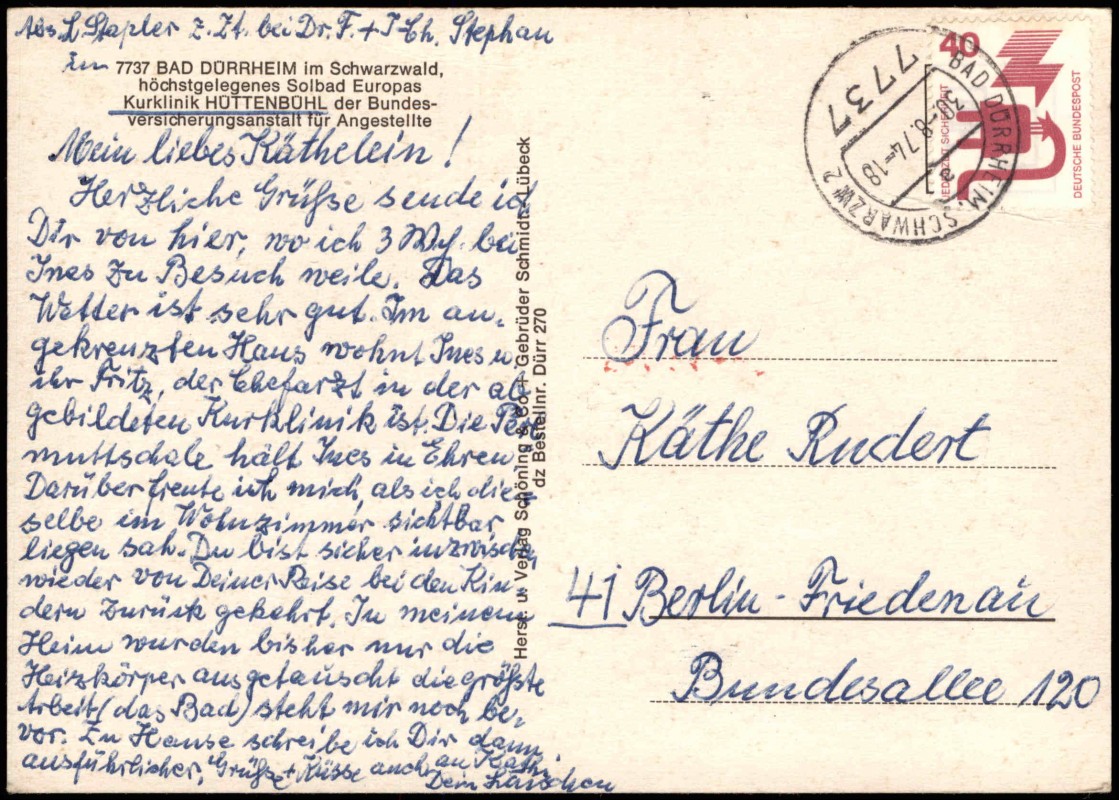 Abs. L. Stapler z. Zt. bei Dr. F. + I-Ch. Stephan
im 7737 BAD DÜRRHEIM im Schwarzwald,
höchstgelegenes Solbad Europas
Kurklinik HÜTTENBÜHL der Bundes-
versicherungsanstalt für Angestellte
Mein liebes Käthelein!
Herzliche Grüße sende ich
Dir von hier, wo ich 3 Wch. bei
Ines zu Besuch weile. Das
Wetter ist sehr gut. Im an-
gekreuzten Haus wohnt Ines u.
ihr Fritz, der Chefarzt in der ab
gebildeten Kurklinik ist. Die Perl
muttschale hält Ines in Ehren
Darüber freute ich mich, als ich die-
selbe im Wohnzimmer sichtbar
liegen sah. Du bist sicher inzwischen
wieder von Deiner Reise bei den Kin
dern zurück gekehrt. In meinem
Heim wurden bisher nur die
Heizkörper ausgetauscht die größte
Arbeit (das Bad) steht mir noch be-
vor. Zu Hause schreibe ich Dir dann
ausführlicher. Grüße + Küsse auch an Käthi
Dein Luischen
Herst. u. Verlag Schöning & Co + Gebrüder Schmidt, Lübeck
dz Bestellnr. Dürr 270
40
JEDERZEIT SICHERHEIT
DEUTSCHE BUNDESPOST
7737
BAD DÜRRHEIM, SCHWARZW 2
30.-8.74-18
a
Frau
Käthe Rudert
41 Berlin-Friedenau
Bundesallee 120